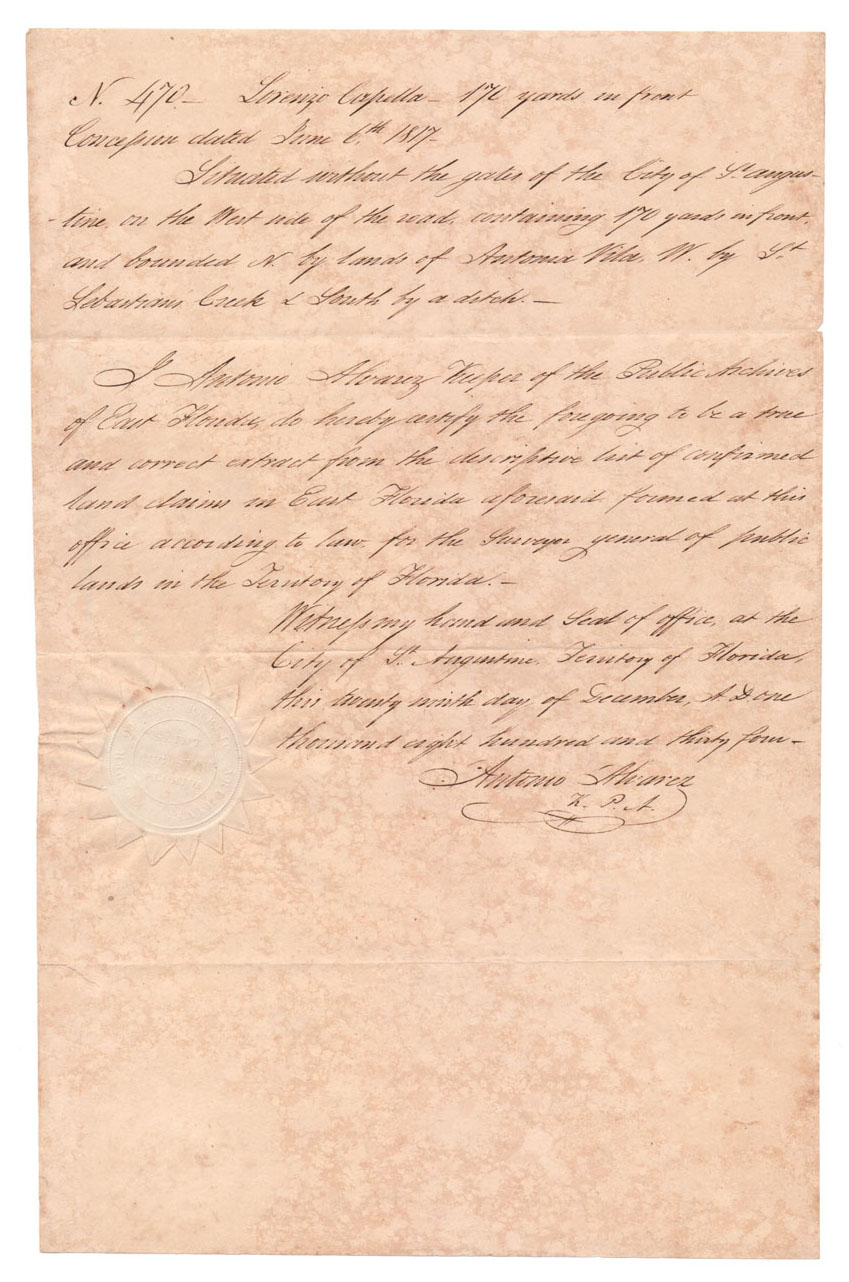 N. 470_ Lorenzo Capella_ 170 yards in front
Concession dated June 6.th 1817_
Situated without the gates of the City of St. Augus-
-tine, on the West side of the road, containing 170 yards in front,
and bounded N. by lands of Antonia Vila, W. by St.
Sebastians Creek & South by a ditch._
I Antonio Alvarez Keeper of the Public Archives
of East Florida, do hereby certify the foregoing to be a true
and correct extract from the descriptive list of confirmed
land claims in East Florida aforesaid formed at this
office according to law, for the Surveyor general of public
lands in the Territory of Florida._
Witness my hand and Seal of office, at the
City of St. Augustine, Territory of Florida,
this twenty ninth day of December, A D one
thousand eight hundred and thirty four_
Antonio Alvarez
K. P. A.